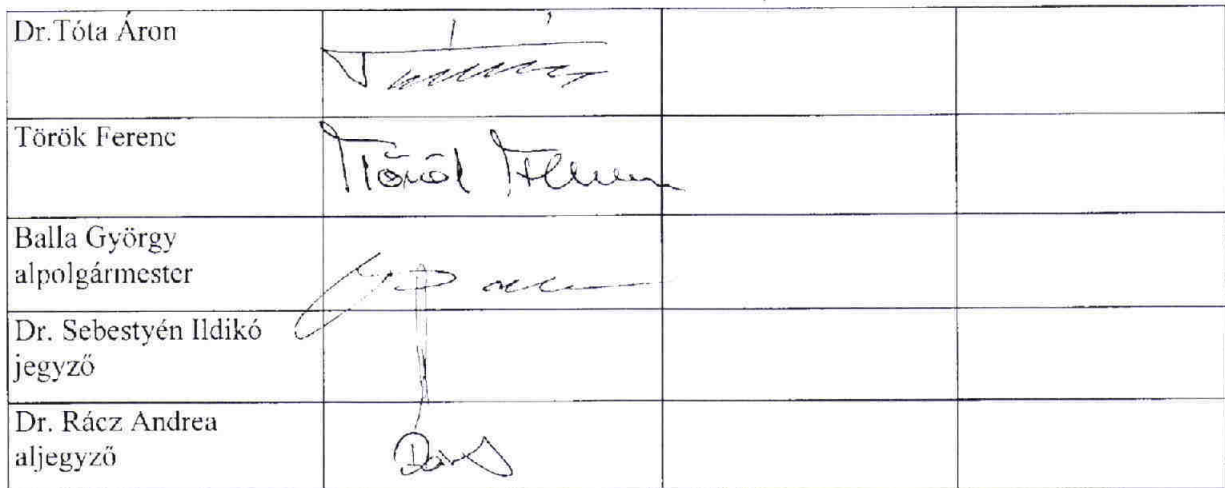 Dr.Tóta Áron
Török Ferenc
Török Ferenc
Balla György
alpolgármester
Dr. Sebestyén Ildikó
jegyző
Dr. Rácz Andrea
aljegyző